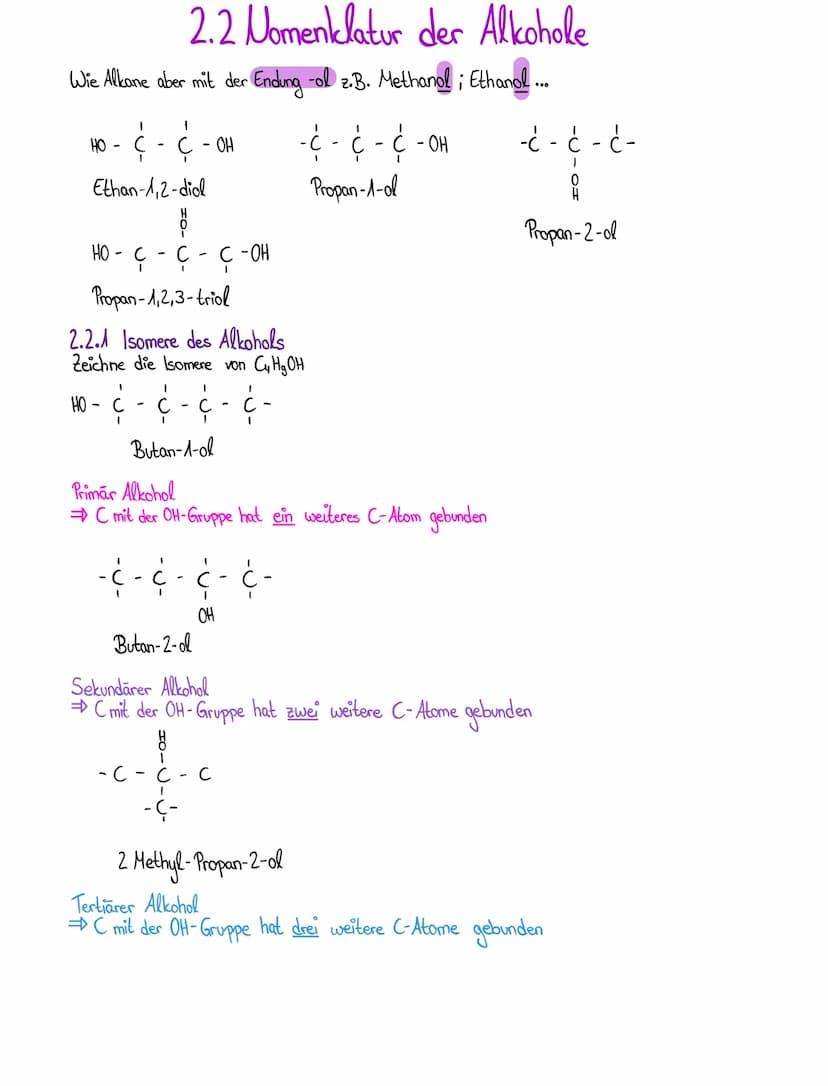 2.2 Nomenklatur der Alkohole
Wie Alkane aber mit der Endung -ol z.B. Methanol ; Ethanol ...
HO - C - C - OH
-C - C - C - OH
-C - C - C-
OH
Ethan-1,2-diol
Propan-1-ol
Propan-2-ol
OH
HO - C - C - C - OH
Propan-1,2,3-triol
2.2.1 Isomere des Alkohols
Zeichne die Isomere von C4H9OH
HO - C - C - C - C -
Butan-1-ol
Primär Alkohol
⇒ C mit der OH-Gruppe hat ein weiteres C-Atom gebunden
- C - C - C - C -
OH
Butan-2-ol
Sekundärer Alkohol
⇒ C mit der OH-Gruppe hat zwei weitere C-Atome gebunden
OH
- C - C - C
-C-
2 Methyl-Propan-2-ol
Tertiärer Alkohol
⇒ C mit der OH-Gruppe hat drei weitere C-Atome gebunden